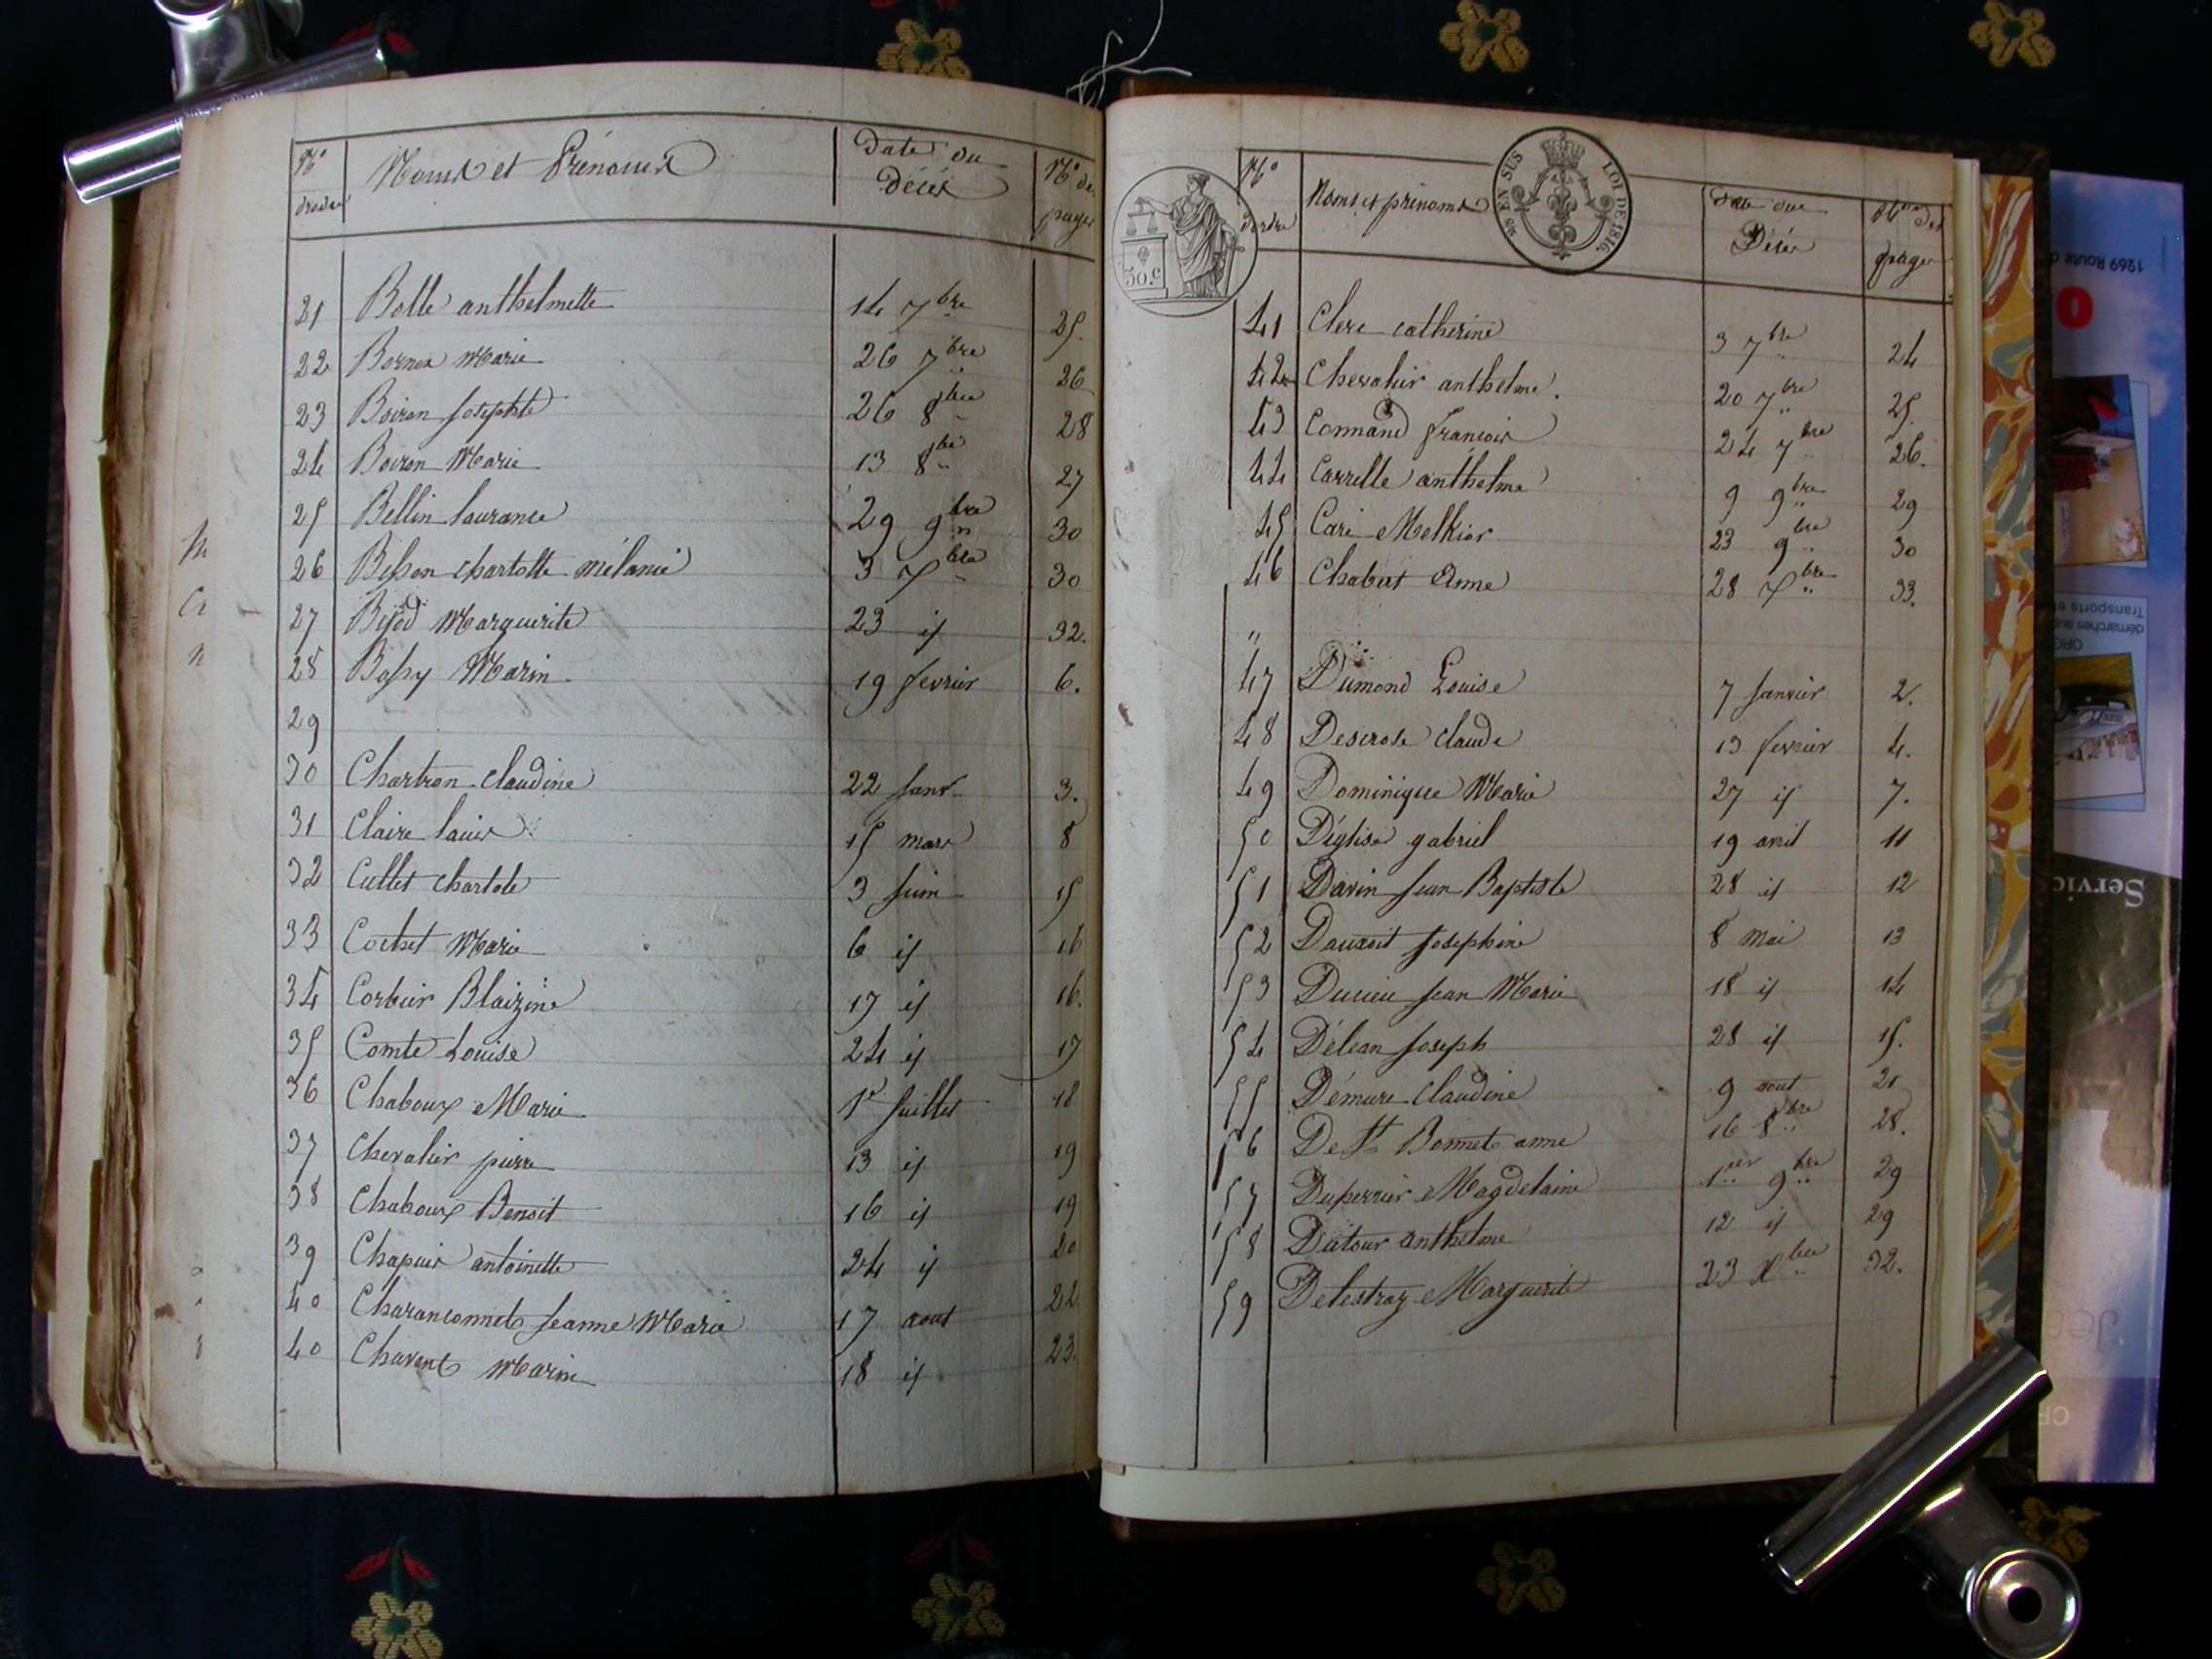 N° d'ordre Noms et Prénoms date du décès N° des pages
21 Bolle anthelmette 14 7bre 25.
22 Bornex Marie 26 7bre 26
23 Boiron Josephte 26 8bre 28
24 Boiron Marie 13 8bre 27
25 Bellin laurance 29 9bre 30
26 Besson charlotte mélanie 3 Xbre 30
27 Bésod Marguerite 23 id 32.
28 Bassy Marin 19 fevrier 6.
29
30 Chartron claudine 22 janv. 3.
31 Claire louis 15 mars 8
32 Cullet charlote 3 juin 15
33 Cochet Marie 6 id 16
34 Corbeir Blaizine 17 id 16.
35 Comte Louise 24 id 17
36 Chaboux Marie 1er juillet 18
37 Chevalier pierre 13 id 19
38 Chaboux Benoit 16 id 19
39 Chapuis antoinette 24 id 20
40 Charanconnet jeanne Marie 17 aout 22
40 Chavent Marin 18 id 23.
N° d'ordre Noms et prénoms Date du Décès N° des pages
EN SUS LOI DE 1816.
50.c
41 Clerc catherine 3 7bre 24
42 Chevalier anthelme. 20 7bre 25.
43 Connand francois 24 7bre 26.
44 Carrelle anthelme 9 9bre 29
45 Cari Melkior 23 9bre 30
46 Chabert Anne 28 Xbre 33.
"
47 Dumond Louise 7 janvier 2.
48 Descrose claude 13 fevrier 4.
49 Dominique Marie 27 id 7.
50 Déglise gabriel 19 avril 11
51 Davin jean Baptiste 28 id 12
52 Dauxoit josephine 8 mai 13
53 Ducieu jean Marie 18 id 14
54 Délean joseph 28 id 15.
55 Démure claudine 9 aout 21
56 De St Bonnet anne 16 8bre 28.
57 Duperrier Magdelaine 1er 9bre 29
58 Datour anthelme 12 id 29
59 Delestraz Marguerite 23 Xbre 32.
1269 Route d
Transports et
démarches aup
Servic